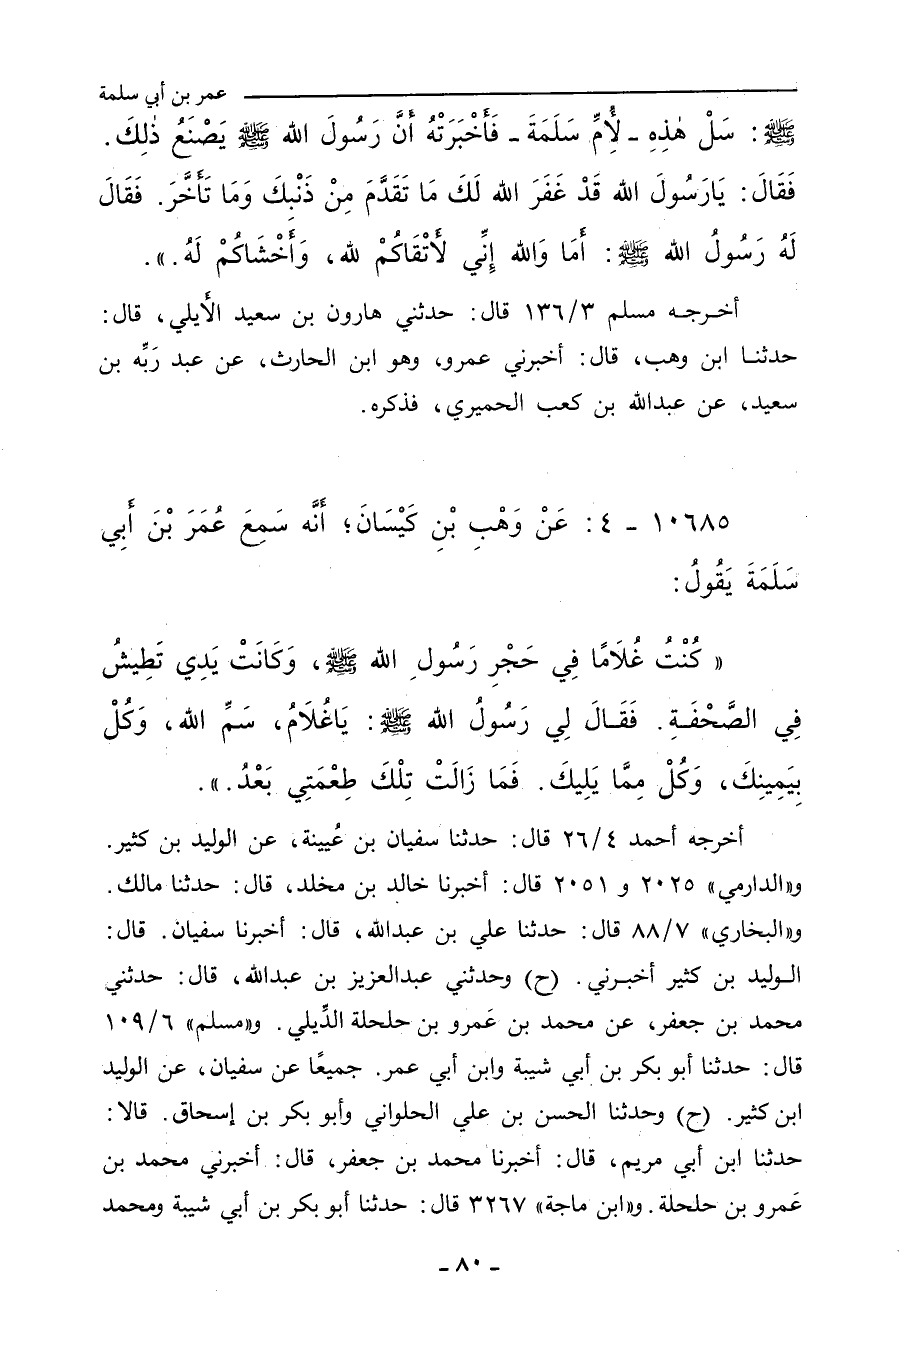 عمر بن أبي سلمة
ﷺ: سَلْ هٰذِهِ ـ لِأُمِّ سَلَمَةَ ـ فَأَخْبَرَتْهُ أَنَّ رَسُولَ الله ﷺ يَصْنَعُ ذٰلِكَ.
فَقَالَ: يَارَسُولَ الله قَدْ غَفَرَ الله لَكَ مَا تَقَدَّمَ مِنْ ذَنْبِكَ وَمَا تَأَخَّرَ. فَقَالَ
لَهُ رَسُولُ الله ﷺ: أَمَا وَالله إِنِّي لَأَتْقَاكُمْ لله، وَأَخْشَاكُمْ لَهُ.».
أخرجه مسلم ١٣٦/٣ قال: حدثني هارون بن سعيد الأَيلي، قال:
حدثنا ابن وهب، قال: أخبرني عمرو، وهو ابن الحارث، عن عبد رَبِّه بن
سعيد، عن عبدالله بن كعب الحميري، فذكره.
١٠٦٨٥ ـ ٤: عَنْ وَهْبِ بْنِ كَيْسَانَ؛ أَنَّه سَمِعَ عُمَرَ بْنَ أَبِي
سَلَمَةَ يَقُولُ:
« كُنْتُ غُلَامًا فِي حَجْرِ رَسُولِ الله ﷺ، وَكَانَتْ يَدِي تَطِيشُ
فِي الصَّحْفَةِ. فَقَالَ لِي رَسُولُ الله ﷺ: يَاغُلَامُ، سَمِّ الله، وَكُلْ
بِيَمِينِكَ، وَكُلْ مِمَّا يَلِيكَ. فَمَا زَالَتْ تِلْكَ طِعْمَتِي بَعْدُ.».
أخرجه أحمد ٢٦/٤ قال: حدثنا سفيان بن عُيينة، عن الوليد بن كثير.
و«الدارمي» ٢٠٢٥ و ٢٠٥١ قال: أخبرنا خالد بن مخلد، قال: حدثنا مالك.
و«البخاري» ٨٨/٧ قال: حدثنا علي بن عبدالله، قال: أخبرنا سفيان. قال:
الوليد بن كثير أخبرني. (ح) وحدثني عبدالعزيز بن عبدالله، قال: حدثني
محمد بن جعفر، عن محمد بن عَمرو بن حلحلة الدِّيلي. و«مسلم» ١٠٩/٦
قال: حدثنا أبو بكر بن أبي شيبة وابن أبي عمر. جميعًا عن سفيان، عن الوليد
ابن كثير. (ح) وحدثنا الحسن بن علي الحلواني وأبو بكر بن إسحاق. قالا:
حدثنا ابن أبي مريم، قال: أخبرنا محمد بن جعفر، قال: أخبرني محمد بن
عَمرو بن حلحلة. و«ابن ماجة» ٣٢٦٧ قال: حدثنا أبو بكر بن أبي شيبة ومحمد
ـ ٨٠ ـ